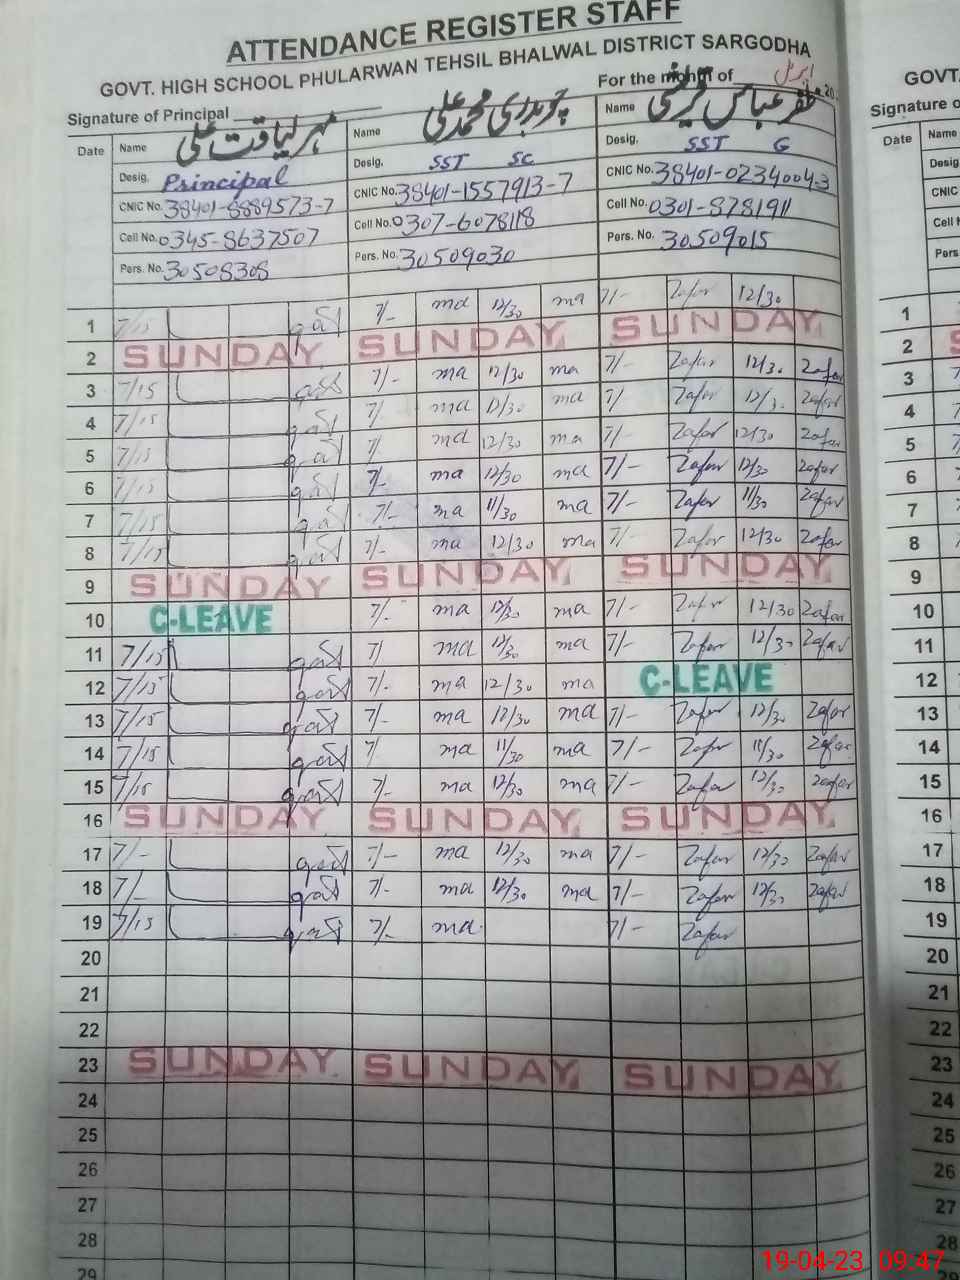 ATTENDANCE REGISTER STAFF
GOVT. HIGH SCHOOL PHULARWAN TEHSIL BHALWAL DISTRICT SARGODHA
Signature of Principal For the month of اپریل 20
Date Name مہر لیاقت علی Name چوہدری محمد علی Name ظفر عباس قریشی
Desig. Principal Desig. SST SC Desig. SST G
CNIC No. 38401-8889573-7 CNIC No. 38401-1557913-7 CNIC No. 38401-0234004-3
Cell No. 0345-8637507 Cell No. 0307-6078118 Cell No. 0301-8781911
Pers. No. 30508308 Pers. No. 30509030 Pers. No. 30509015
1 7/15 7/- ma 12/30 ma 7/- Zafar 12/30
2 SUNDAY SUNDAY SUNDAY
3 7/15 7/- ma 12/30 ma 7/- Zafar 12/30 Zafar
4 7/15 7/ ma 12/30 ma 7/- Zafar 12/30 Zafar
5 7/15 7/ ma 12/30 ma 7/- Zafar 12/30 Zafar
6 7/15 7/- ma 12/30 ma 7/- Zafar 12/30 Zafar
7 7/15 7/- ma 11/30 ma 7/- Zafar 11/30 Zafar
8 7/15 7/- ma 12/30 ma 7/- Zafar 12/30 Zafar
9 SUNDAY SUNDAY SUNDAY
10 C-LEAVE 7/- ma 12/30 ma 7/- Zafar 12/30 Zafar
11 7/15 7/ ma 12/30 ma 7/- Zafar 12/30 Zafar
12 7/15 7/- ma 12/30 ma C-LEAVE
13 7/15 7/- ma 12/30 ma 7/- Zafar 12/30 Zafar
14 7/15 7/ ma 11/30 ma 7/- Zafar 11/30 Zafar
15 7/15 7/- ma 12/30 ma 7/- Zafar 12/30 Zafar
16 SUNDAY SUNDAY SUNDAY
17 7/- 7/- ma 12/30 ma 7/- Zafar 12/30 Zafar
18 7/- 7/- ma 12/30 ma 7/- Zafar 12/30 Zafar
19 7/15 7/- ma 7/- Zafar
20
21
22
23 SUNDAY SUNDAY SUNDAY
24
25
26
27
28
29
GOVT.
Signature o
Date Name
Desig
CNIC
Cell N
Pers.
1
2
3
4
5
6
7
8
9
10
11
12
13
14
15
16
17
18
19
20
21
22
23
24
25
26
27
28
19-04-23 09:47